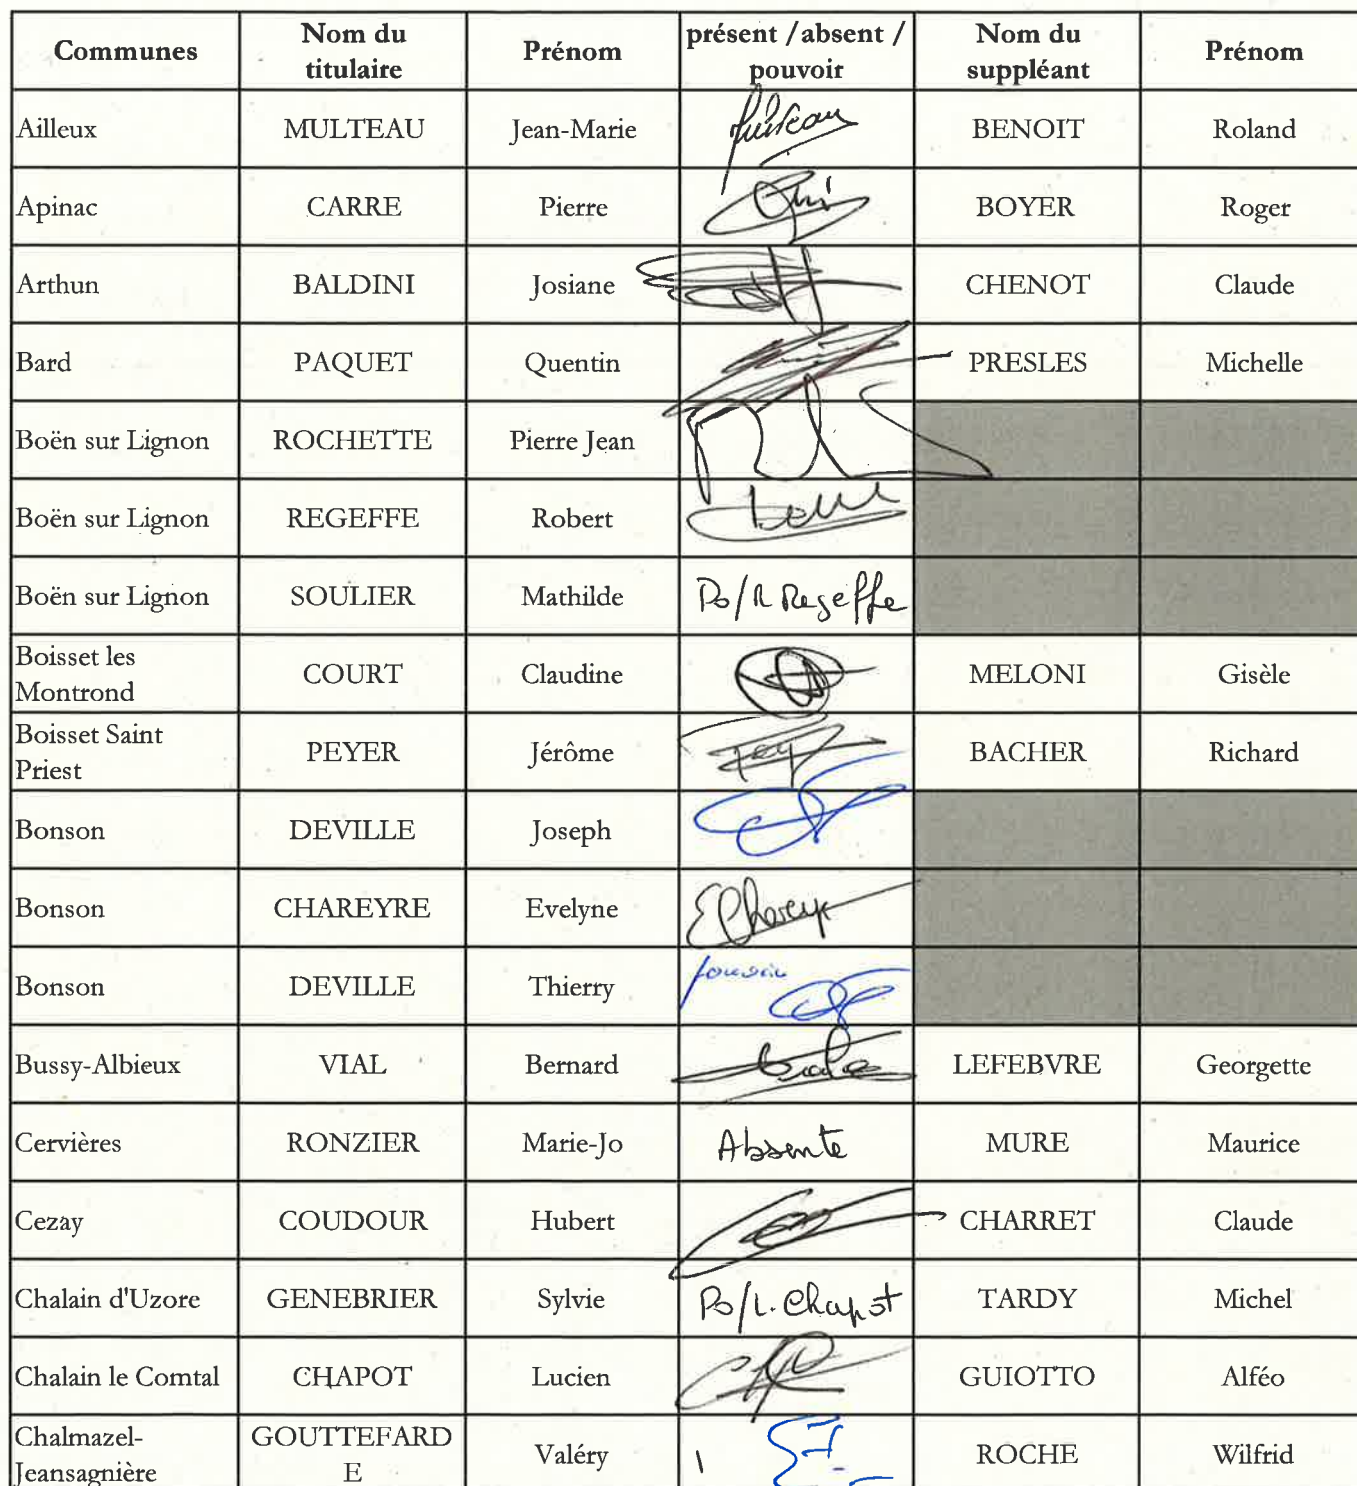 Communes Nom du titulaire Prénom présent /absent / pouvoir Nom du suppléant Prénom
Ailleux MULTEAU Jean-Marie BENOIT Roland
Apinac CARRE Pierre BOYER Roger
Arthun BALDINI Josiane CHENOT Claude
Bard PAQUET Quentin PRESLES Michelle
Boën sur Lignon ROCHETTE Pierre Jean
Boën sur Lignon REGEFFE Robert
Boën sur Lignon SOULIER Mathilde Po/R Regeffe
Boisset les Montrond COURT Claudine MELONI Gisèle
Boisset Saint Priest PEYER Jérôme BACHER Richard
Bonson DEVILLE Joseph
Bonson CHAREYRE Evelyne EChareyre
Bonson DEVILLE Thierry pouvoir
Bussy-Albieux VIAL Bernard LEFEBVRE Georgette
Cervières RONZIER Marie-Jo Absente MURE Maurice
Cezay COUDOUR Hubert CHARRET Claude
Chalain d'Uzore GENEBRIER Sylvie Po/L. Chapot TARDY Michel
Chalain le Comtal CHAPOT Lucien GUIOTTO Alféo
Chalmazel-Jeansagnière GOUTTEFARDE Valéry ROCHE Wilfrid